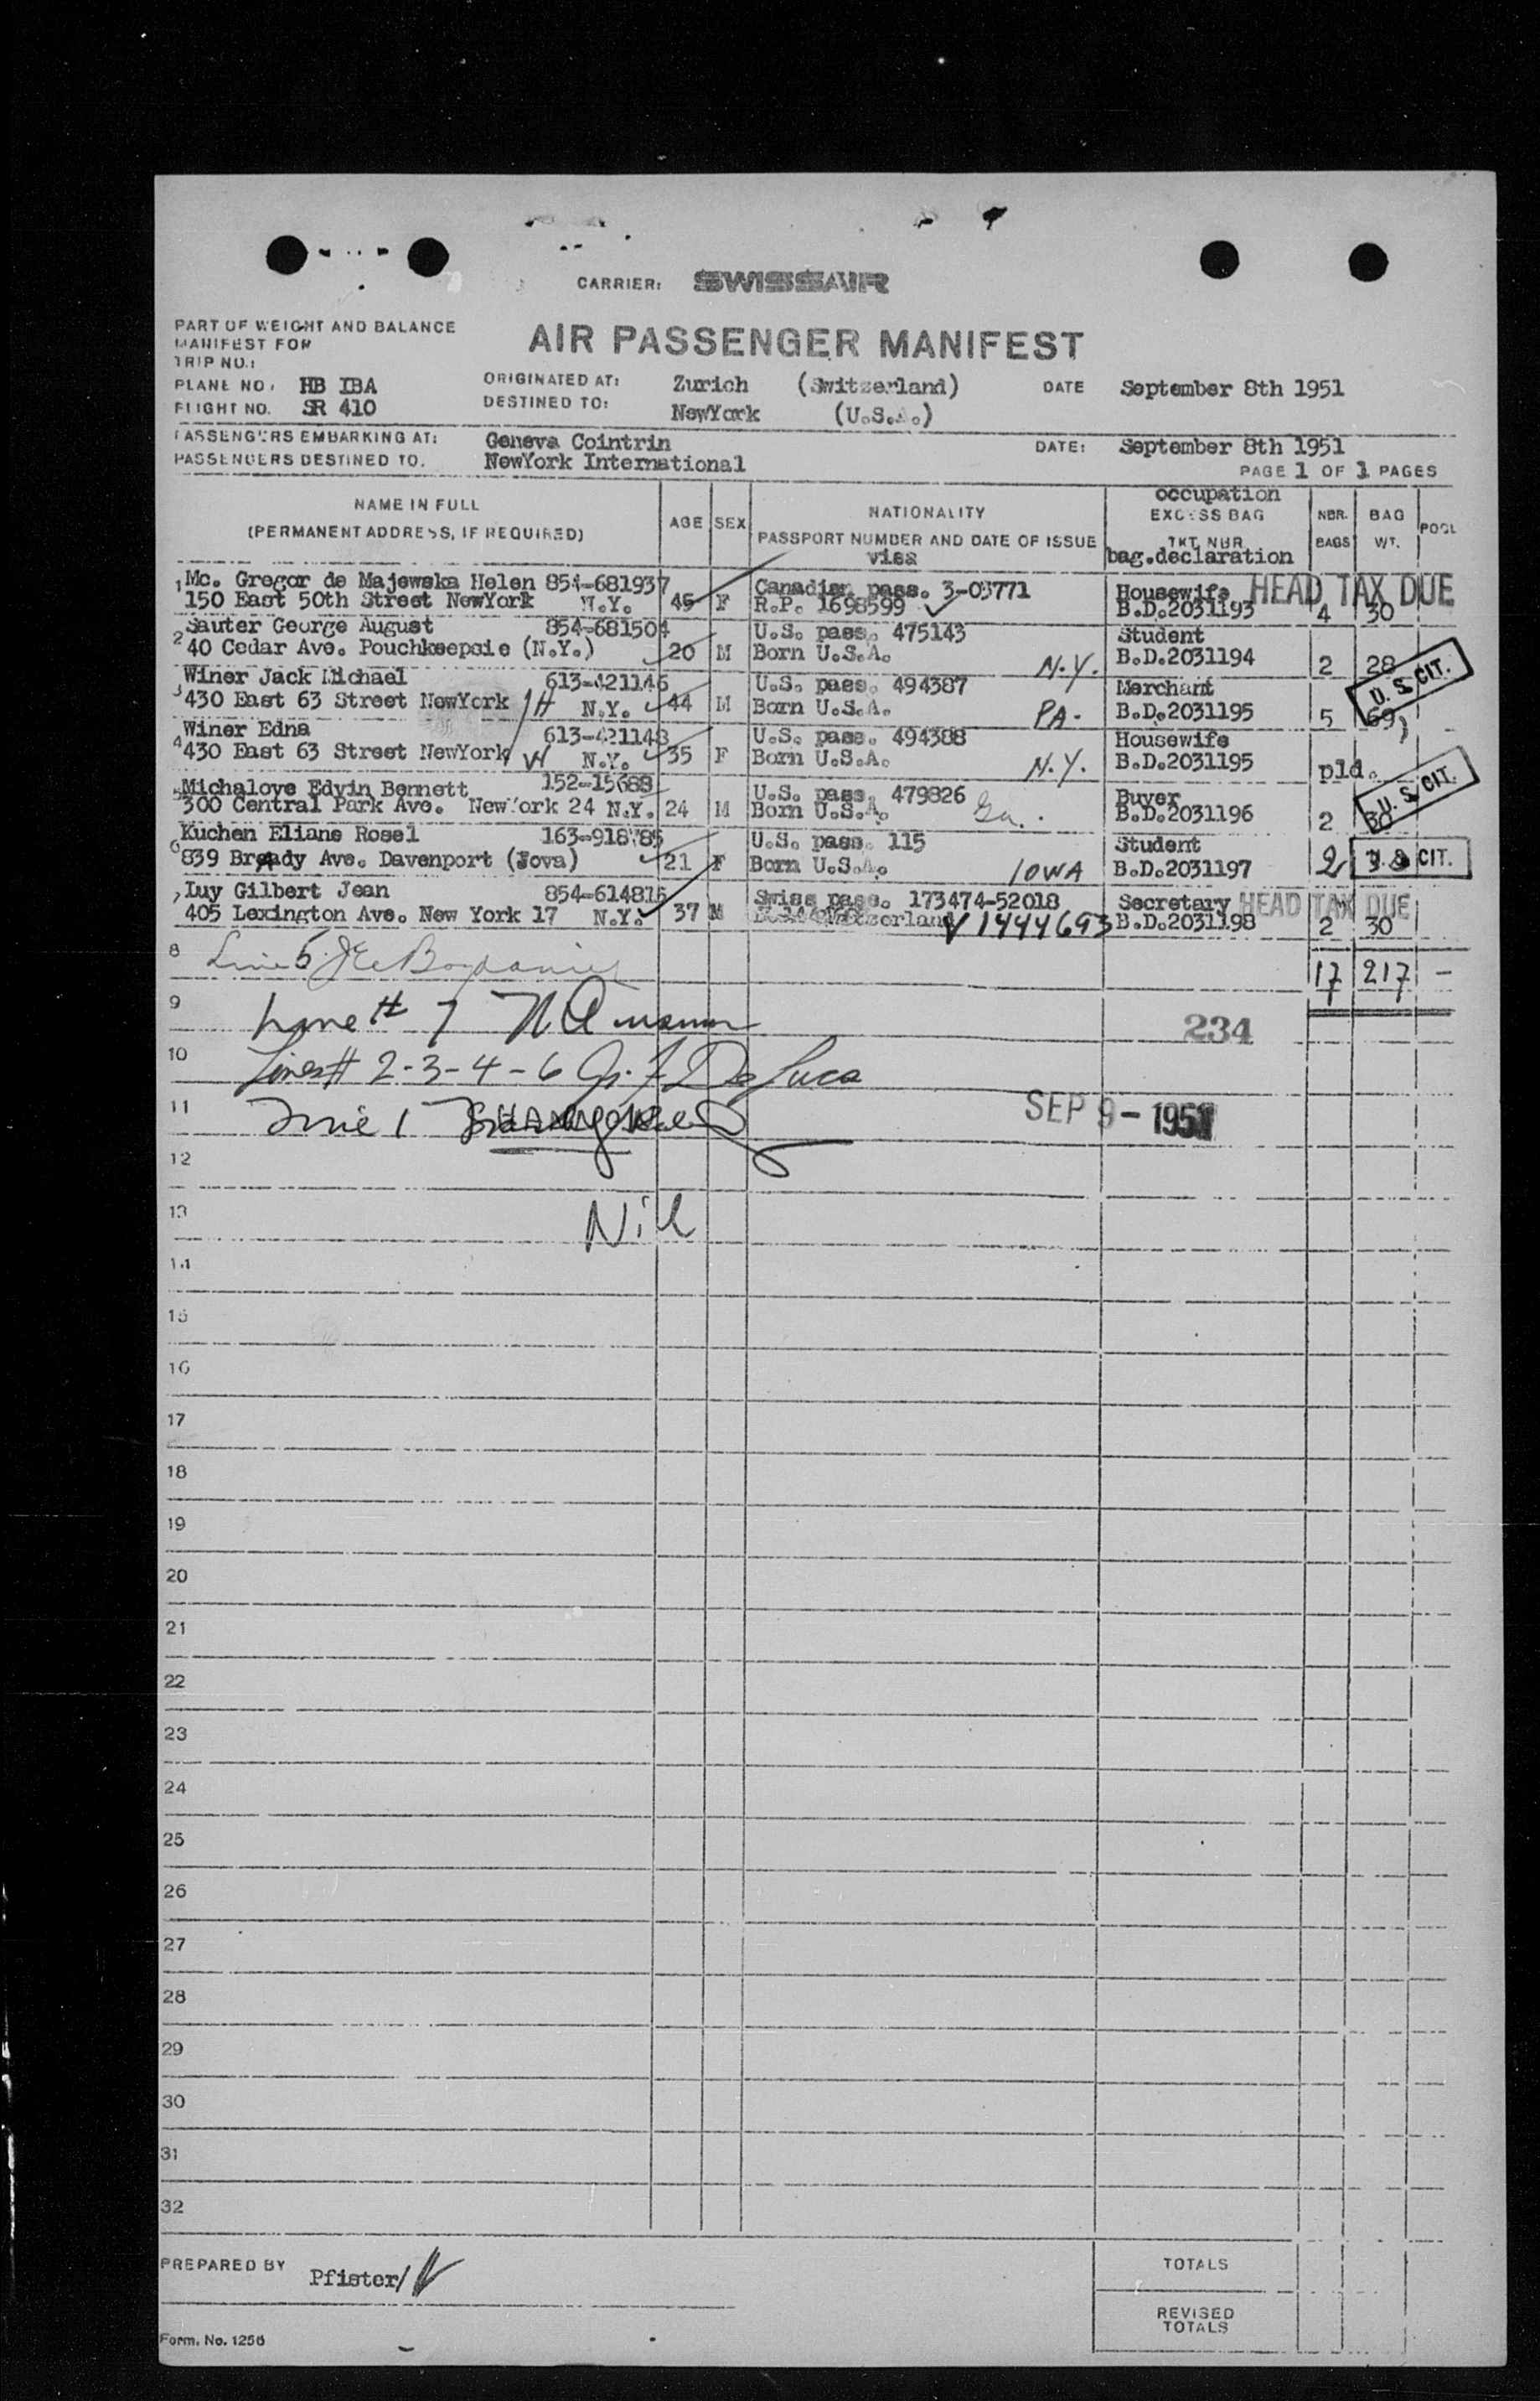 CARRIER: SWISSAIR
PART OF WEIGHT AND BALANCE
MANIFEST FOR
TRIP NO.:
AIR PASSENGER MANIFEST
PLANE NO. HB IBA ORIGINATED AT: Zurich (Switzerland) DATE September 8th 1951
FLIGHT NO. SR 410 DESTINED TO: NewYork (U.S.A.)
PASSENGERS EMBARKING AT: Geneva Cointrin DATE: September 8th 1951
PASSENGERS DESTINED TO. NewYork International
PAGE 1 OF 1 PAGES
NAME IN FULL
(PERMANENT ADDRESS, IF REQUIRED) AGE SEX NATIONALITY
PASSPORT NUMBER AND DATE OF ISSUE
visa
occupation
EXCESS BAG
TKT NBR
bag.declaration
NBR.
BAGS
BAG
WT.
POOL
1 Mc. Gregor de Majewska Helen 854-681937 Canadian pass. 3-03771 Housewife HEAD TAX DUE
150 East 50th Street NewYork N.Y. 45 F R.P. 1698599 B.D.2031193 4 30
2 Sauter George August 854-681504 U.S. pass. 475143 Student
40 Cedar Ave. Pouchkeepsie (N.Y.) 20 M Born U.S.A. N.Y. B.D.2031194 2 28
3 Winer Jack Michael 613-421146 U.S. pass. 494387 Merchant U.S. CIT.
430 East 63 Street NewYork H N.Y. 44 M Born U.S.A. PA. B.D.2031195 5 69
4 Winer Edna 613-421148 U.S. pass. 494388 Housewife
430 East 63 Street NewYork W N.Y. 35 F Born U.S.A. N.Y. B.D.2031195 pld.
5 Michalove Edvin Bennett 152-15689 U.S. pass. 479826 Buyer U.S. CIT.
300 Central Park Ave. NewYork 24 N.Y. 24 M Born U.S.A. Ga. B.D.2031196 2 30
6 Kuchen Eliane Rosel 163-918785 U.S. pass. 115 Student
839 Brady Ave. Davenport (Jova) 21 F Born U.S.A. IOWA B.D.2031197 2 U.S. CIT.
7 Luy Gilbert Jean 854-614815 Swiss pass. 173474-52018 Secretary HEAD TAX DUE
405 Lexington Ave. New York 17 N.Y. 37 M V 1444693 B.D.2031198 2 30
8 Line 5 17 217 -
9 Line # 7 234
10 Lines # 2-3-4-6 De Luca
11 Line 1 SEP 9 - 1951
12
13 Nil
14
15
16
17
18
19
20
21
22
23
24
25
26
27
28
29
30
31
32
PREPARED BY Pfister/
TOTALS
REVISED
TOTALS
Form. No. 1256